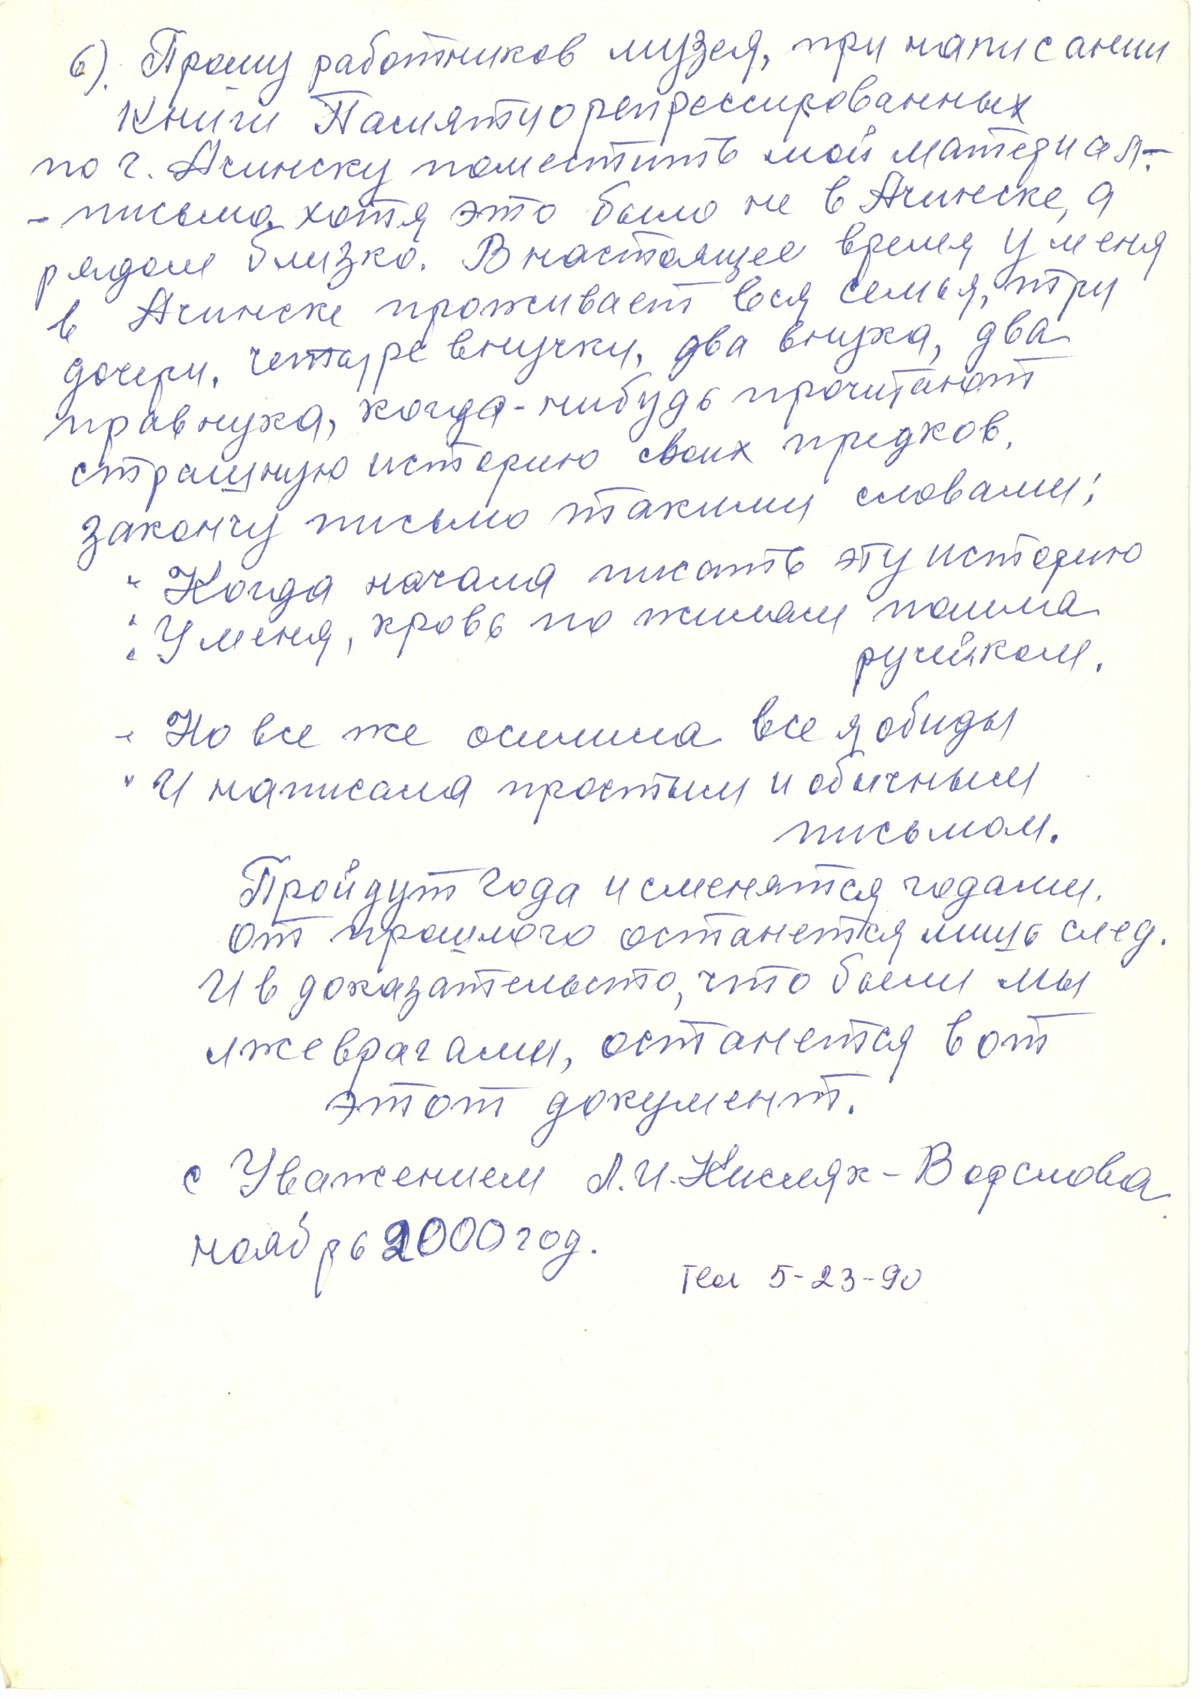 6). Прошу работников музея, при написании
Книги Памяти о репрессированных
по г. Ачинску поместить мой материал-
- письмо, хотя это было не в Ачинске, а
рядом близко. В настоящее время у меня
в Ачинске проживает вся семья, три
дочери, четыре внучки, два внука, два
правнука, когда-нибудь прочитают
страшную историю своих предков.
Закончу письмо такими словами:
" Когда начала писать эту историю
" У меня, кровь по жилам пошла
ручейком.
" Но все же осилила все я обиды
" И написала простым и обычным
письмом.
Пройдут года и сменятся годами.
От прошлого останется лишь след.
И в доказательсто, что были мы
лжеврагами, останется вот
этот документ.
с Уважением Л.И. Кисляк-
ноябрь 2000 год.
тел 5-23-90